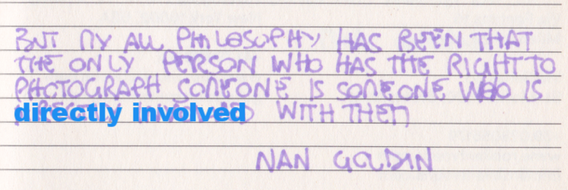 BUT MY ALL PHILOSOPHY HAS BEEN THAT
THE ONLY PERSON WHO HAS THE RIGHT TO
PHOTOGRAPH SOMEONE IS SOMEONE WHO IS
directly involved WITH THEM
NAN GOLDIN